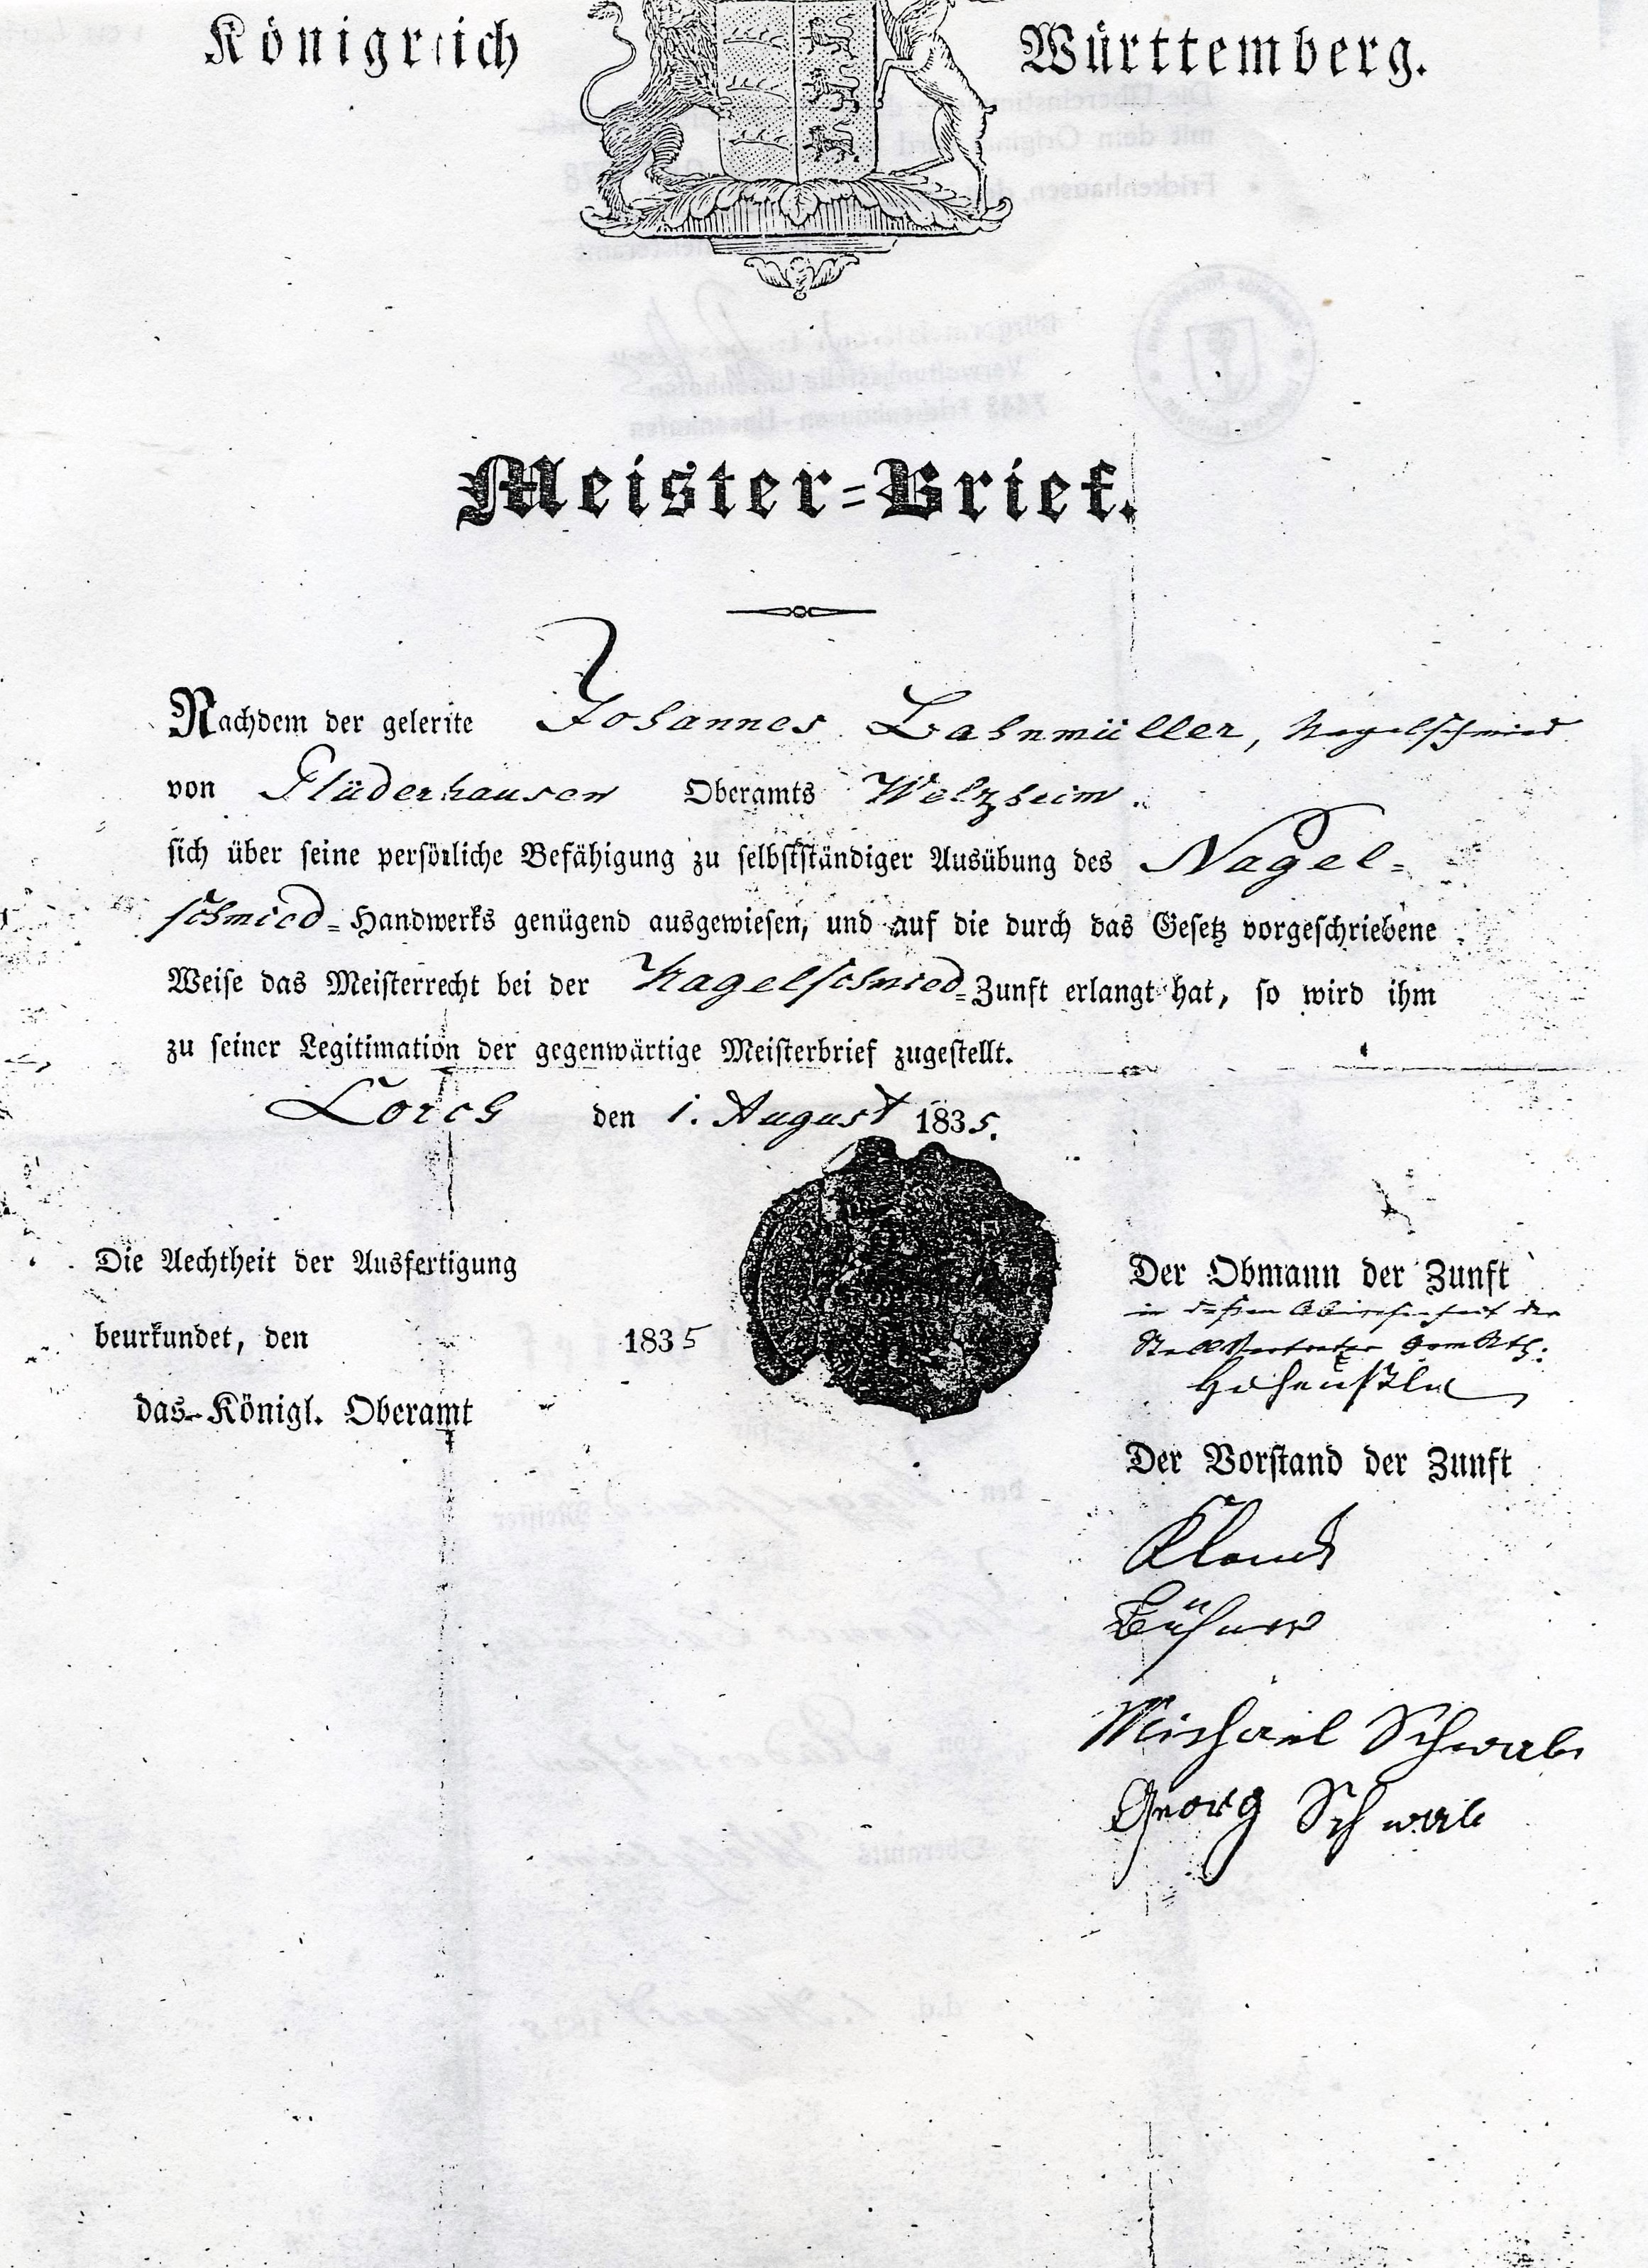 Königreich Württemberg.
Meister=Brief.
Nachdem der gelernte Johannes Bahnmüller, Nagelschmied
von Plüderhausen Oberamts Welzheim.
sich über seine persönliche Befähigung zu selbstständiger Ausübung des Nagel=
schmied=Handwerks genügend ausgewiesen, und auf die durch das Gesetz vorgeschriebene
Weise das Meisterrecht bei der Nagelschmied=Zunft erlangt hat, so wird ihm
zu seiner Legitimation der gegenwärtige Meisterbrief zugestellt.
Lorch den 1. August 1835.
Die Aechtheit der Ausfertigung
beurkundet, den 1835
das Königl. Oberamt
Der Obmann der Zunft
in dessen Abwesenheit der
Stellvertreter
Der Vorstand der Zunft
Bühner
Michael Schwab
Georg Schwab